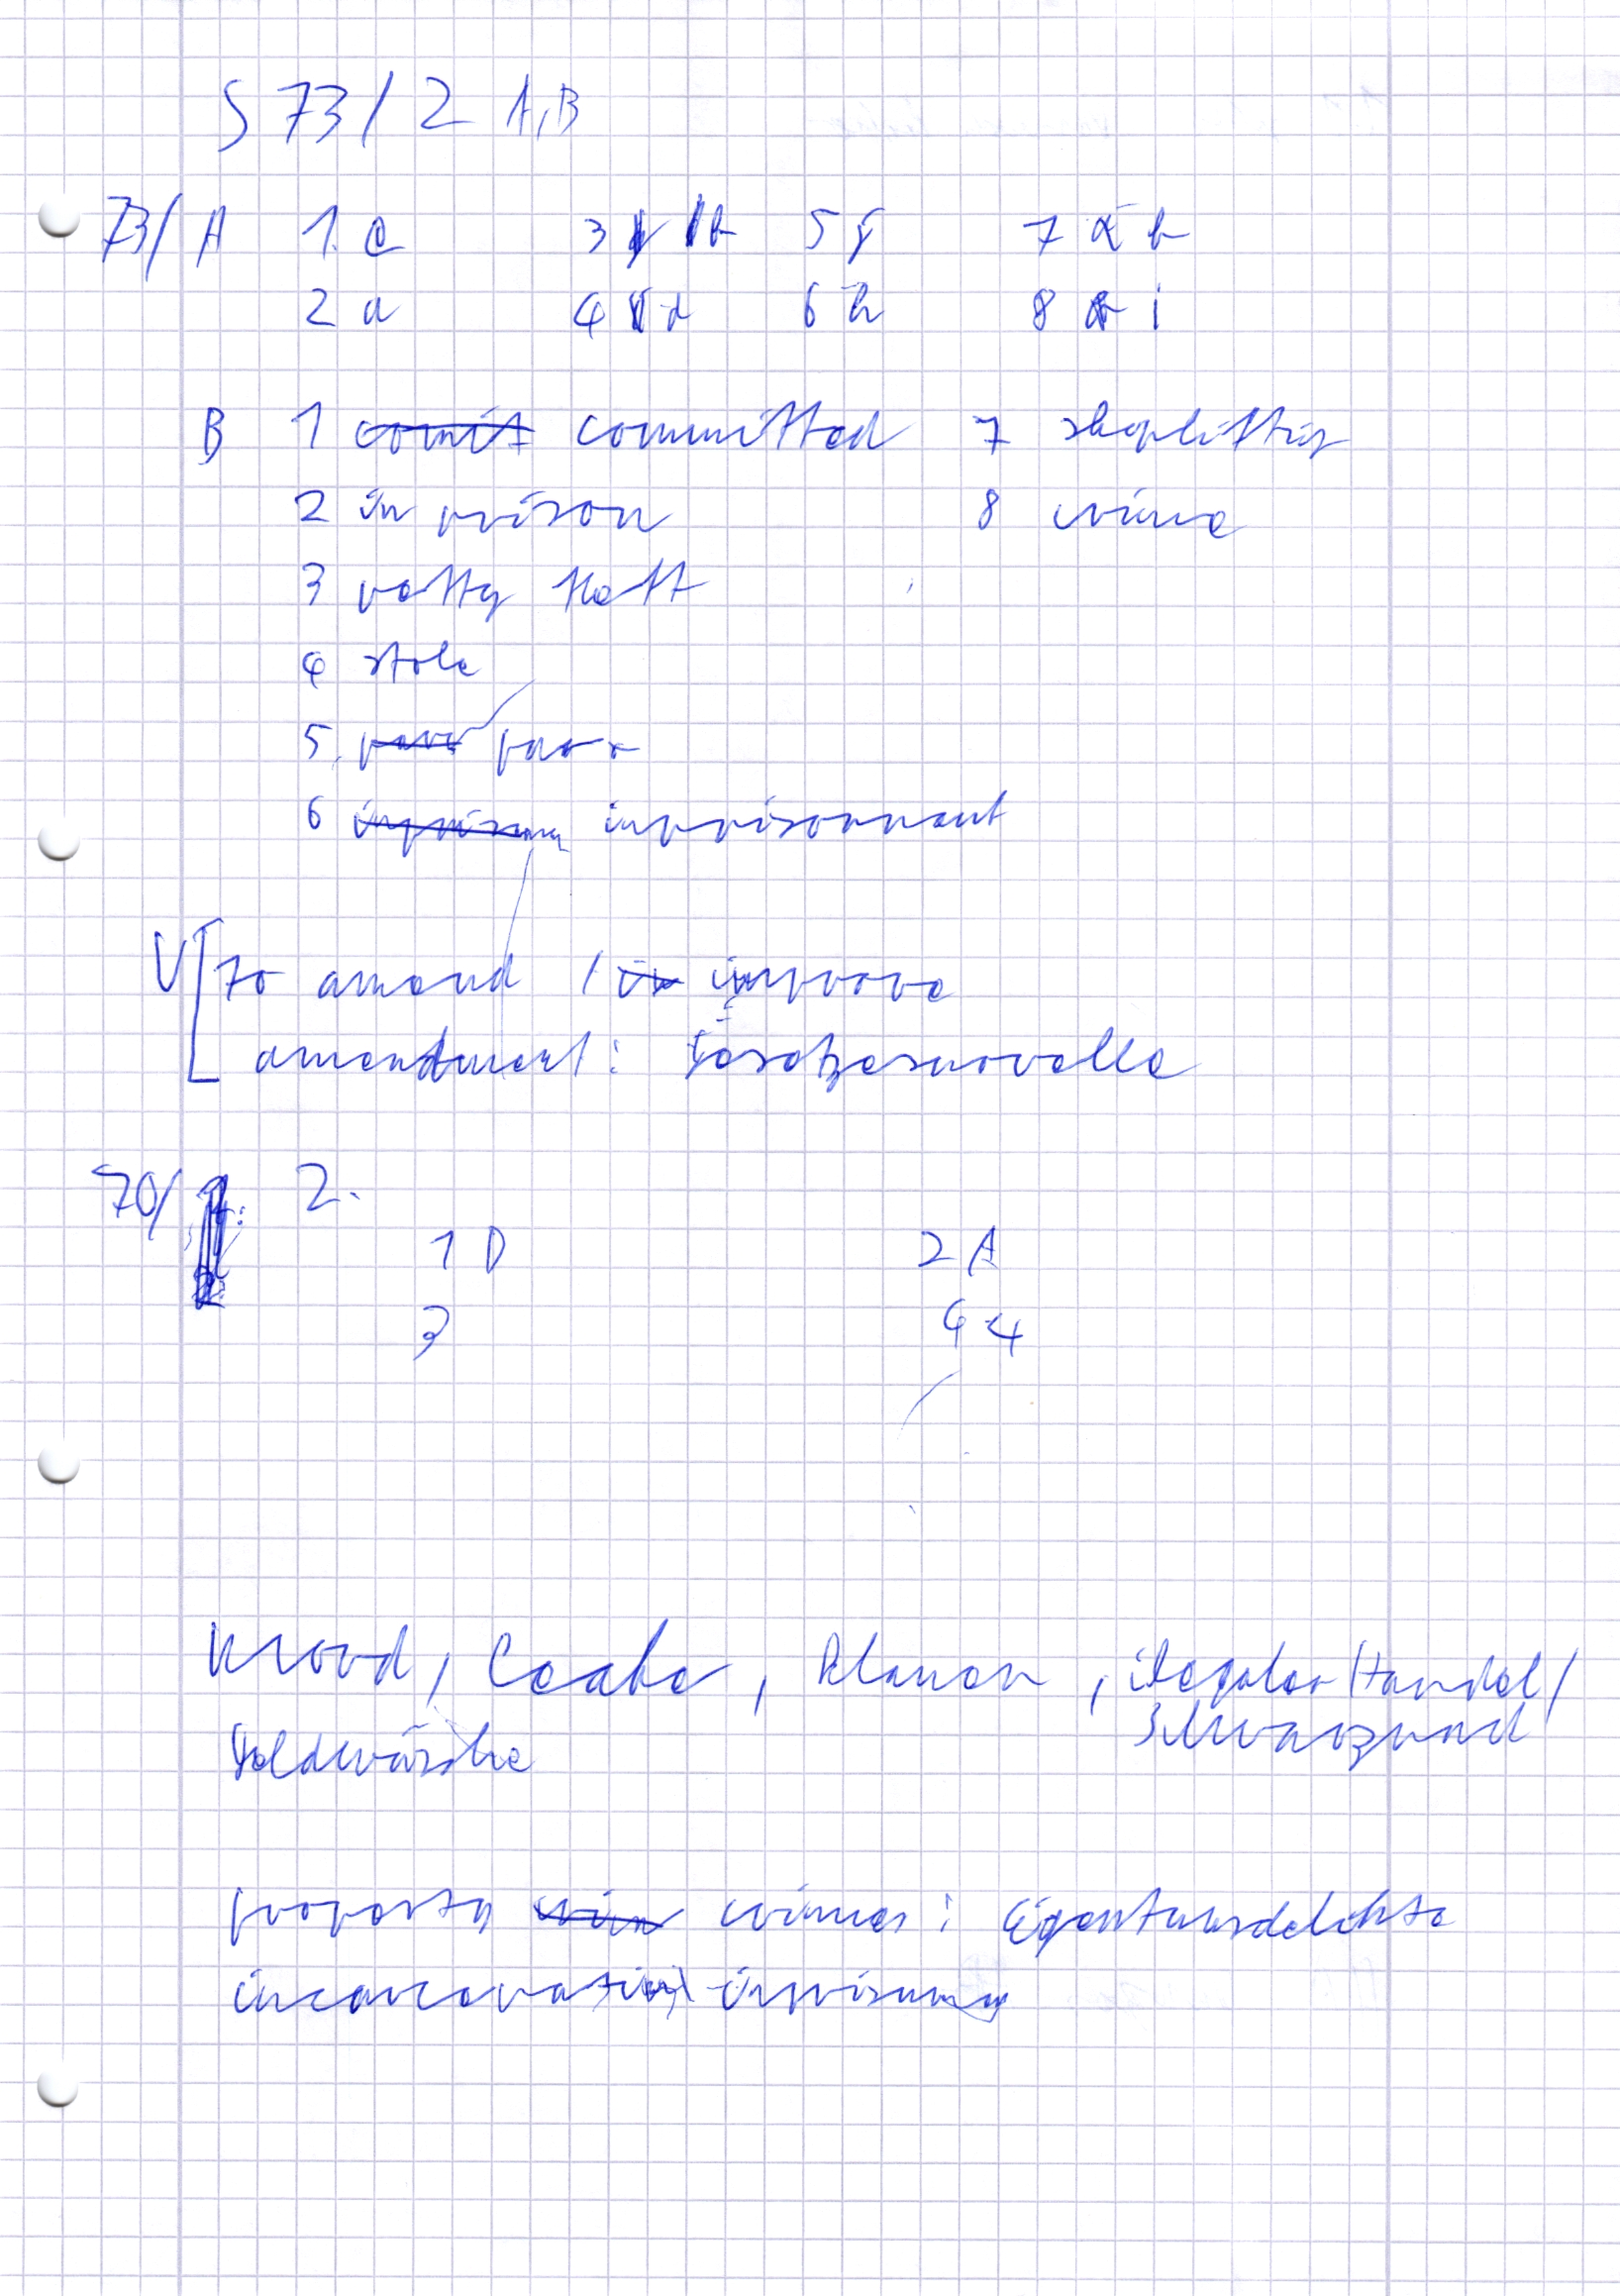 S 73 / 2 A, B
73/ A 1. c 3 b 5 g 7 b
2 a 4 d 6 h 8 i
B 1 comit committed 7 shoplifting
2 in prison 8 crime
3 petty theft
4 stole
5. poor
6 imprisonment
V to amend / improve
amendment: Gesetzesnovelle
70/ 2.
1 D 2 A
3 4
Mord, Klauen, illegaler Handel /
Geldwäsche Schwarzmarkt
property crimes: Eigentumsdelikte
incarceration